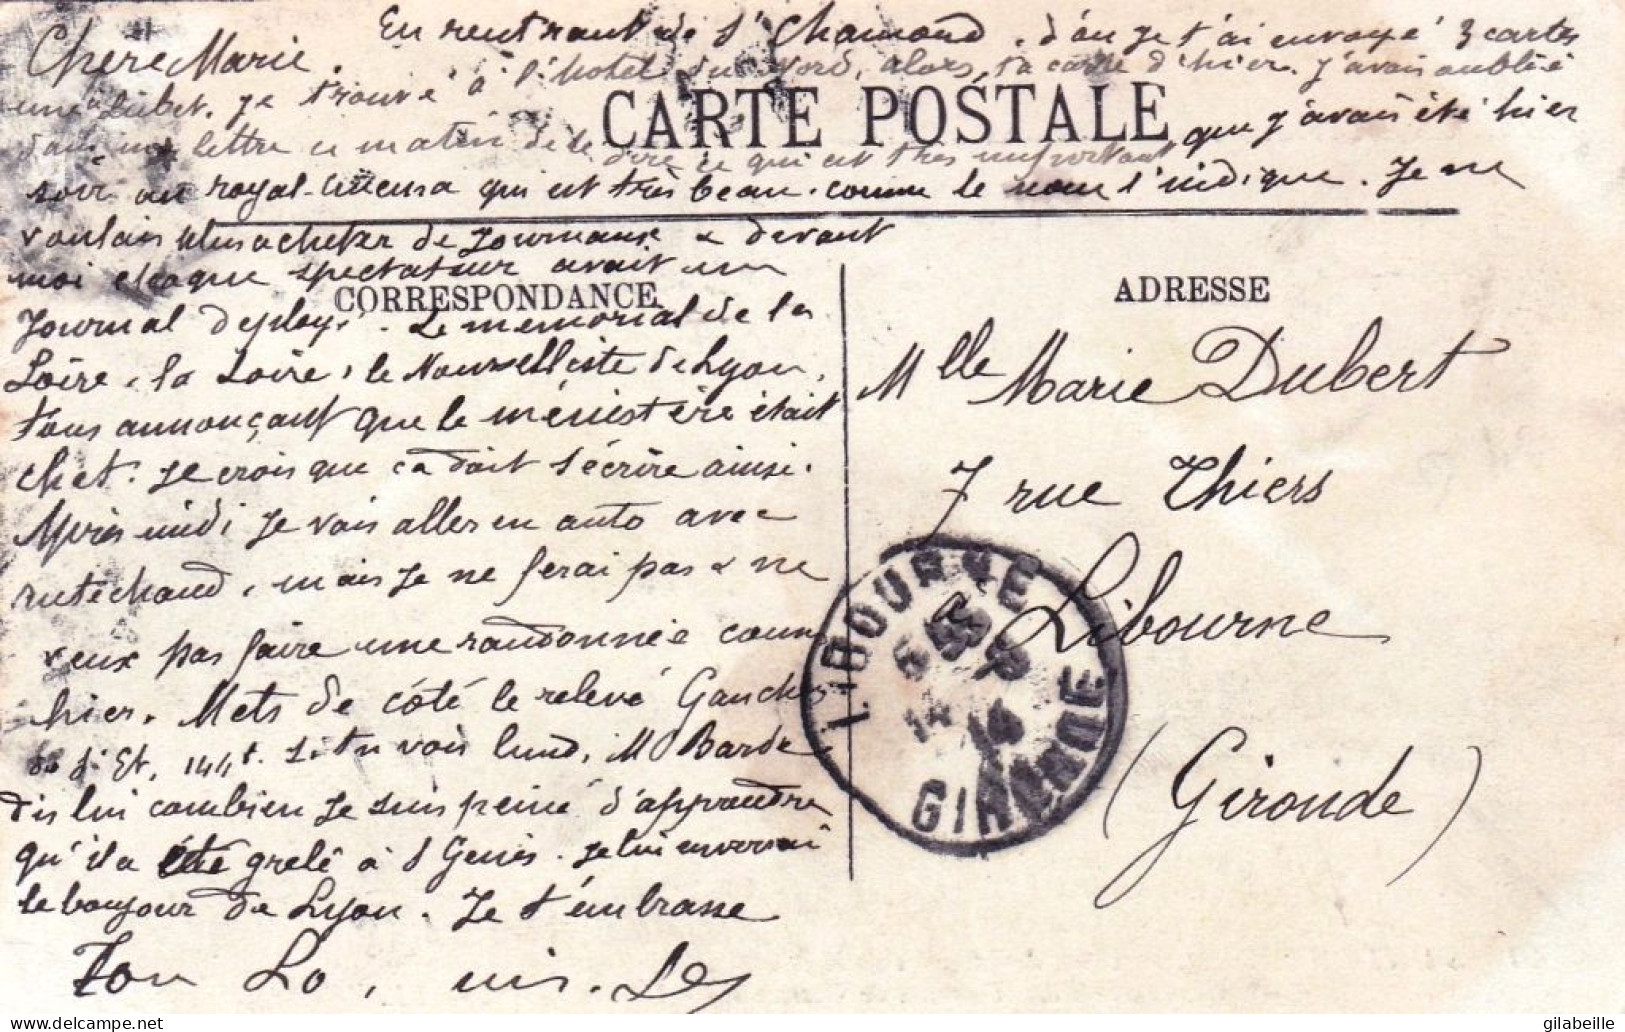 Chère Marie.
En rentrant de St Chamond, d'où je t'ai envoyé 3 cartes
une à Lubet. Je trouve à l'hotel du Nord, alors, ta carte d'hier. J'avais oublié
dans ma lettre ce matin de te dire ce qui est très important que j'avais été hier
CARTE POSTALE
soir au royal-cinema qui est très beau. comme le nom l'indique. Je ne
voulais plus acheter de Journaux & devant
moi chaque spectateur avait un
CORRESPONDANCE
Journal deployé. Le memorial de la
Loire, la Loire, le Nouvelliste de Lyon,
tous annonçant que le ménistère était
chet. Je crois que ça doit s'écrire ainsi.
Après midi je vais aller en auto avec
mais je ne ferai pas & ne
veux pas faire une randonnée comm
hier. Mets de côté le relevé Gauche
de St Et, 144t. Si tu vois lund, M Barde
dis lui combien je suis peiné d'apprendre
qu'il a été grelé à St Genès. Je lui enverrai
le bonjour de Lyon. Je t'embrasse
Ton Lo,
ADRESSE
Mlle Marie Dubert
7 rue Thiers
à Libourne
(Gironde)
LIBOURNE
14
GIRONDE
gilabeille